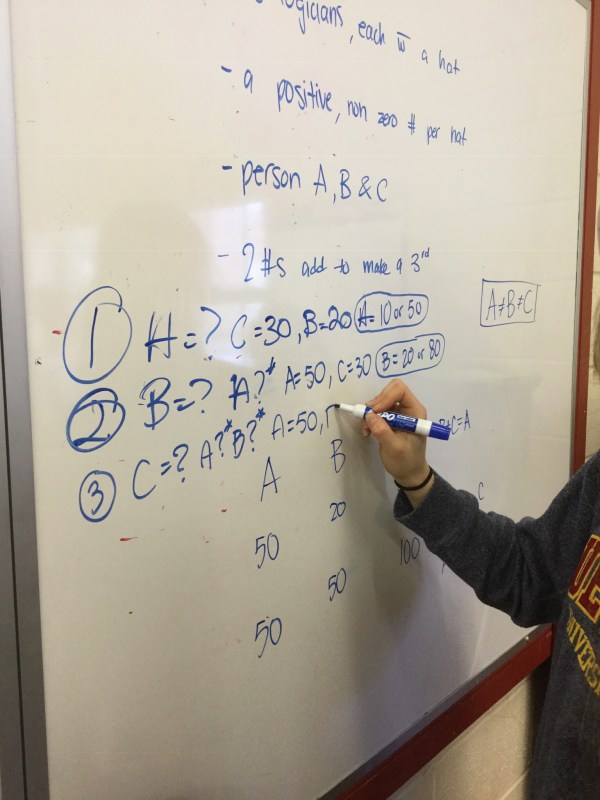 logicians, each w̄ a hat
- a positive, non zero # per hat
- person A, B & C
- 2 #s add to make a 3rd
A≠B≠C
① A=? C=30, B=20 A=10 or 50
② B=? A?* A=50, C=30 B=20 or 80
③ C=? A?* B?* A=50, +C=A
A B C
50 20
50 50 100
EXPO
UNIVERSI